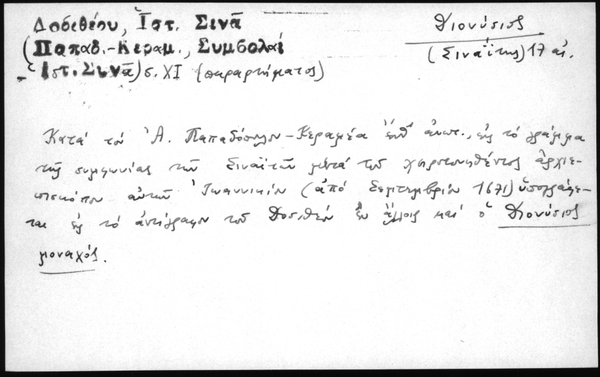 Δοσιθέου, Ἱστ. Σινᾶ
(Παπαδ.-Κεραμ., Συμβολαί
Ἱστ. Σινᾶ) σ. XI (παραρτήματος)
Διονύσιος
(Σιναΐτης) 17 αἰ.
Κατά τόν Ἀ. Παπαδόπουλον-Κεραμέα ἔνθ' ἀνωτ., εἰς τό γράμμα
τῆς συμφωνίας τῶν Σιναϊτῶν μετά τοῦ χειροτονηθέντος ἀρχιε-
πισκόπου αὐτῶν Ἰωαννικίου (ἀπό Σεπτεμβρίου 1671) ὑπογράφε-
ται εἰς τό ἀντίγραφον τοῦ Δοσιθέου ἐν ἄλλοις καί ὁ Διονύσιος
μοναχός.